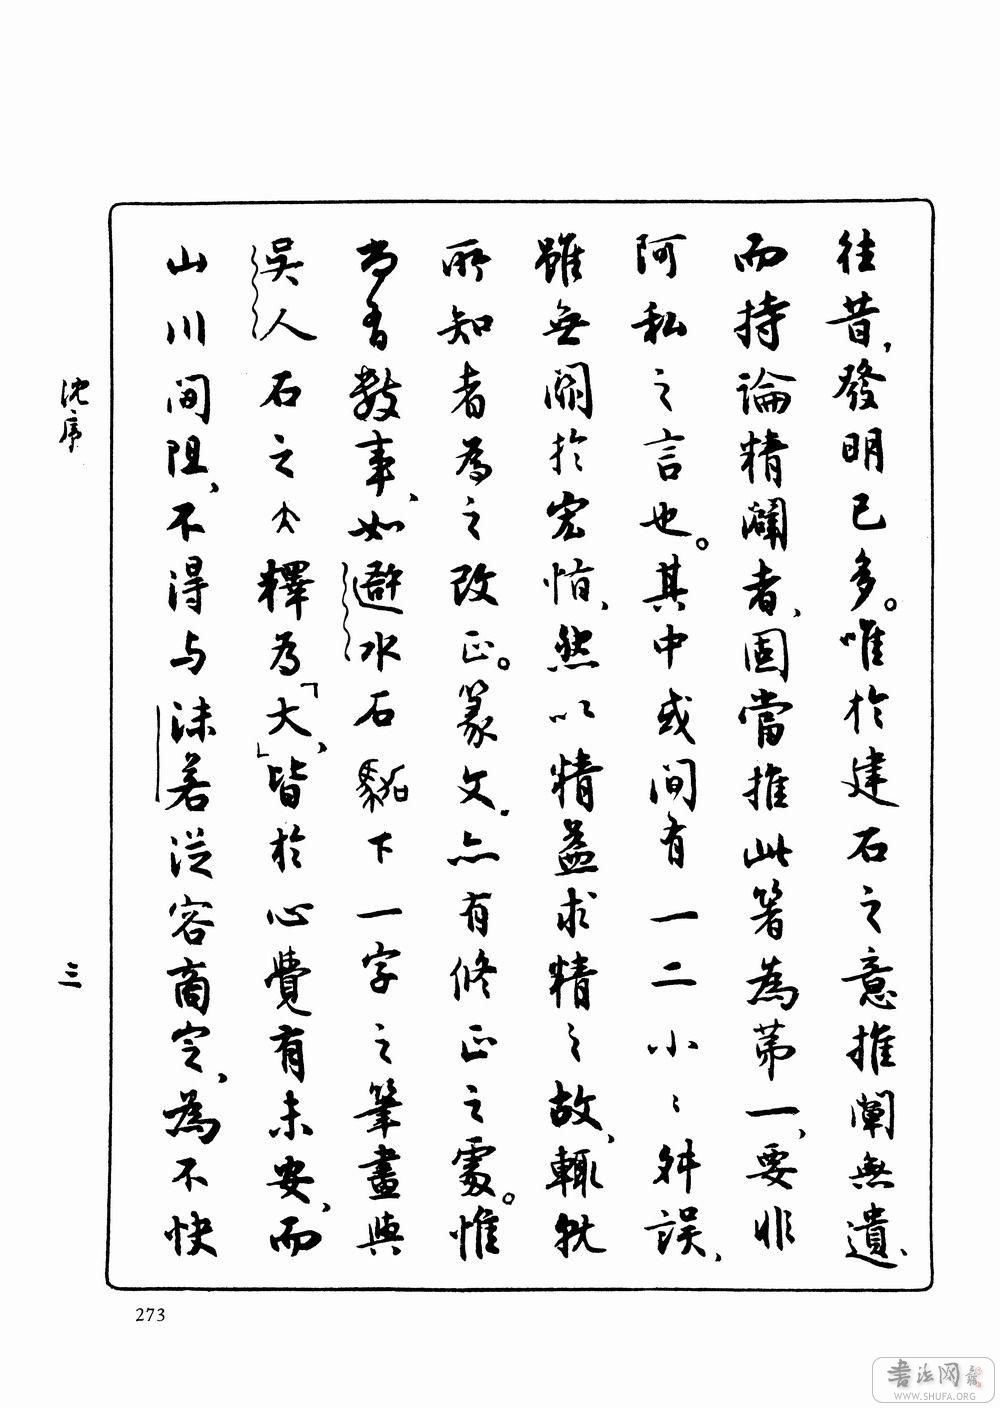 往昔,發明已多。唯於建石之意推闡無遺、
而持論精闢者,固當推此箸為第一,要非
阿私之言也。其中或间有一二小〻舛誤,
雖無關於宏恉,然以精益求精之故,輒就
所知者為之改正。篆文,亦有修正之處。惟
尚有數事,如避水石下一字之筆畫與
吴人石之釋為「大」,皆於心覺有未安,而
山川间阻,不得与沫若從容商定,為不快
沈序
三
273
书法网
WWW.SHUFA.ORG